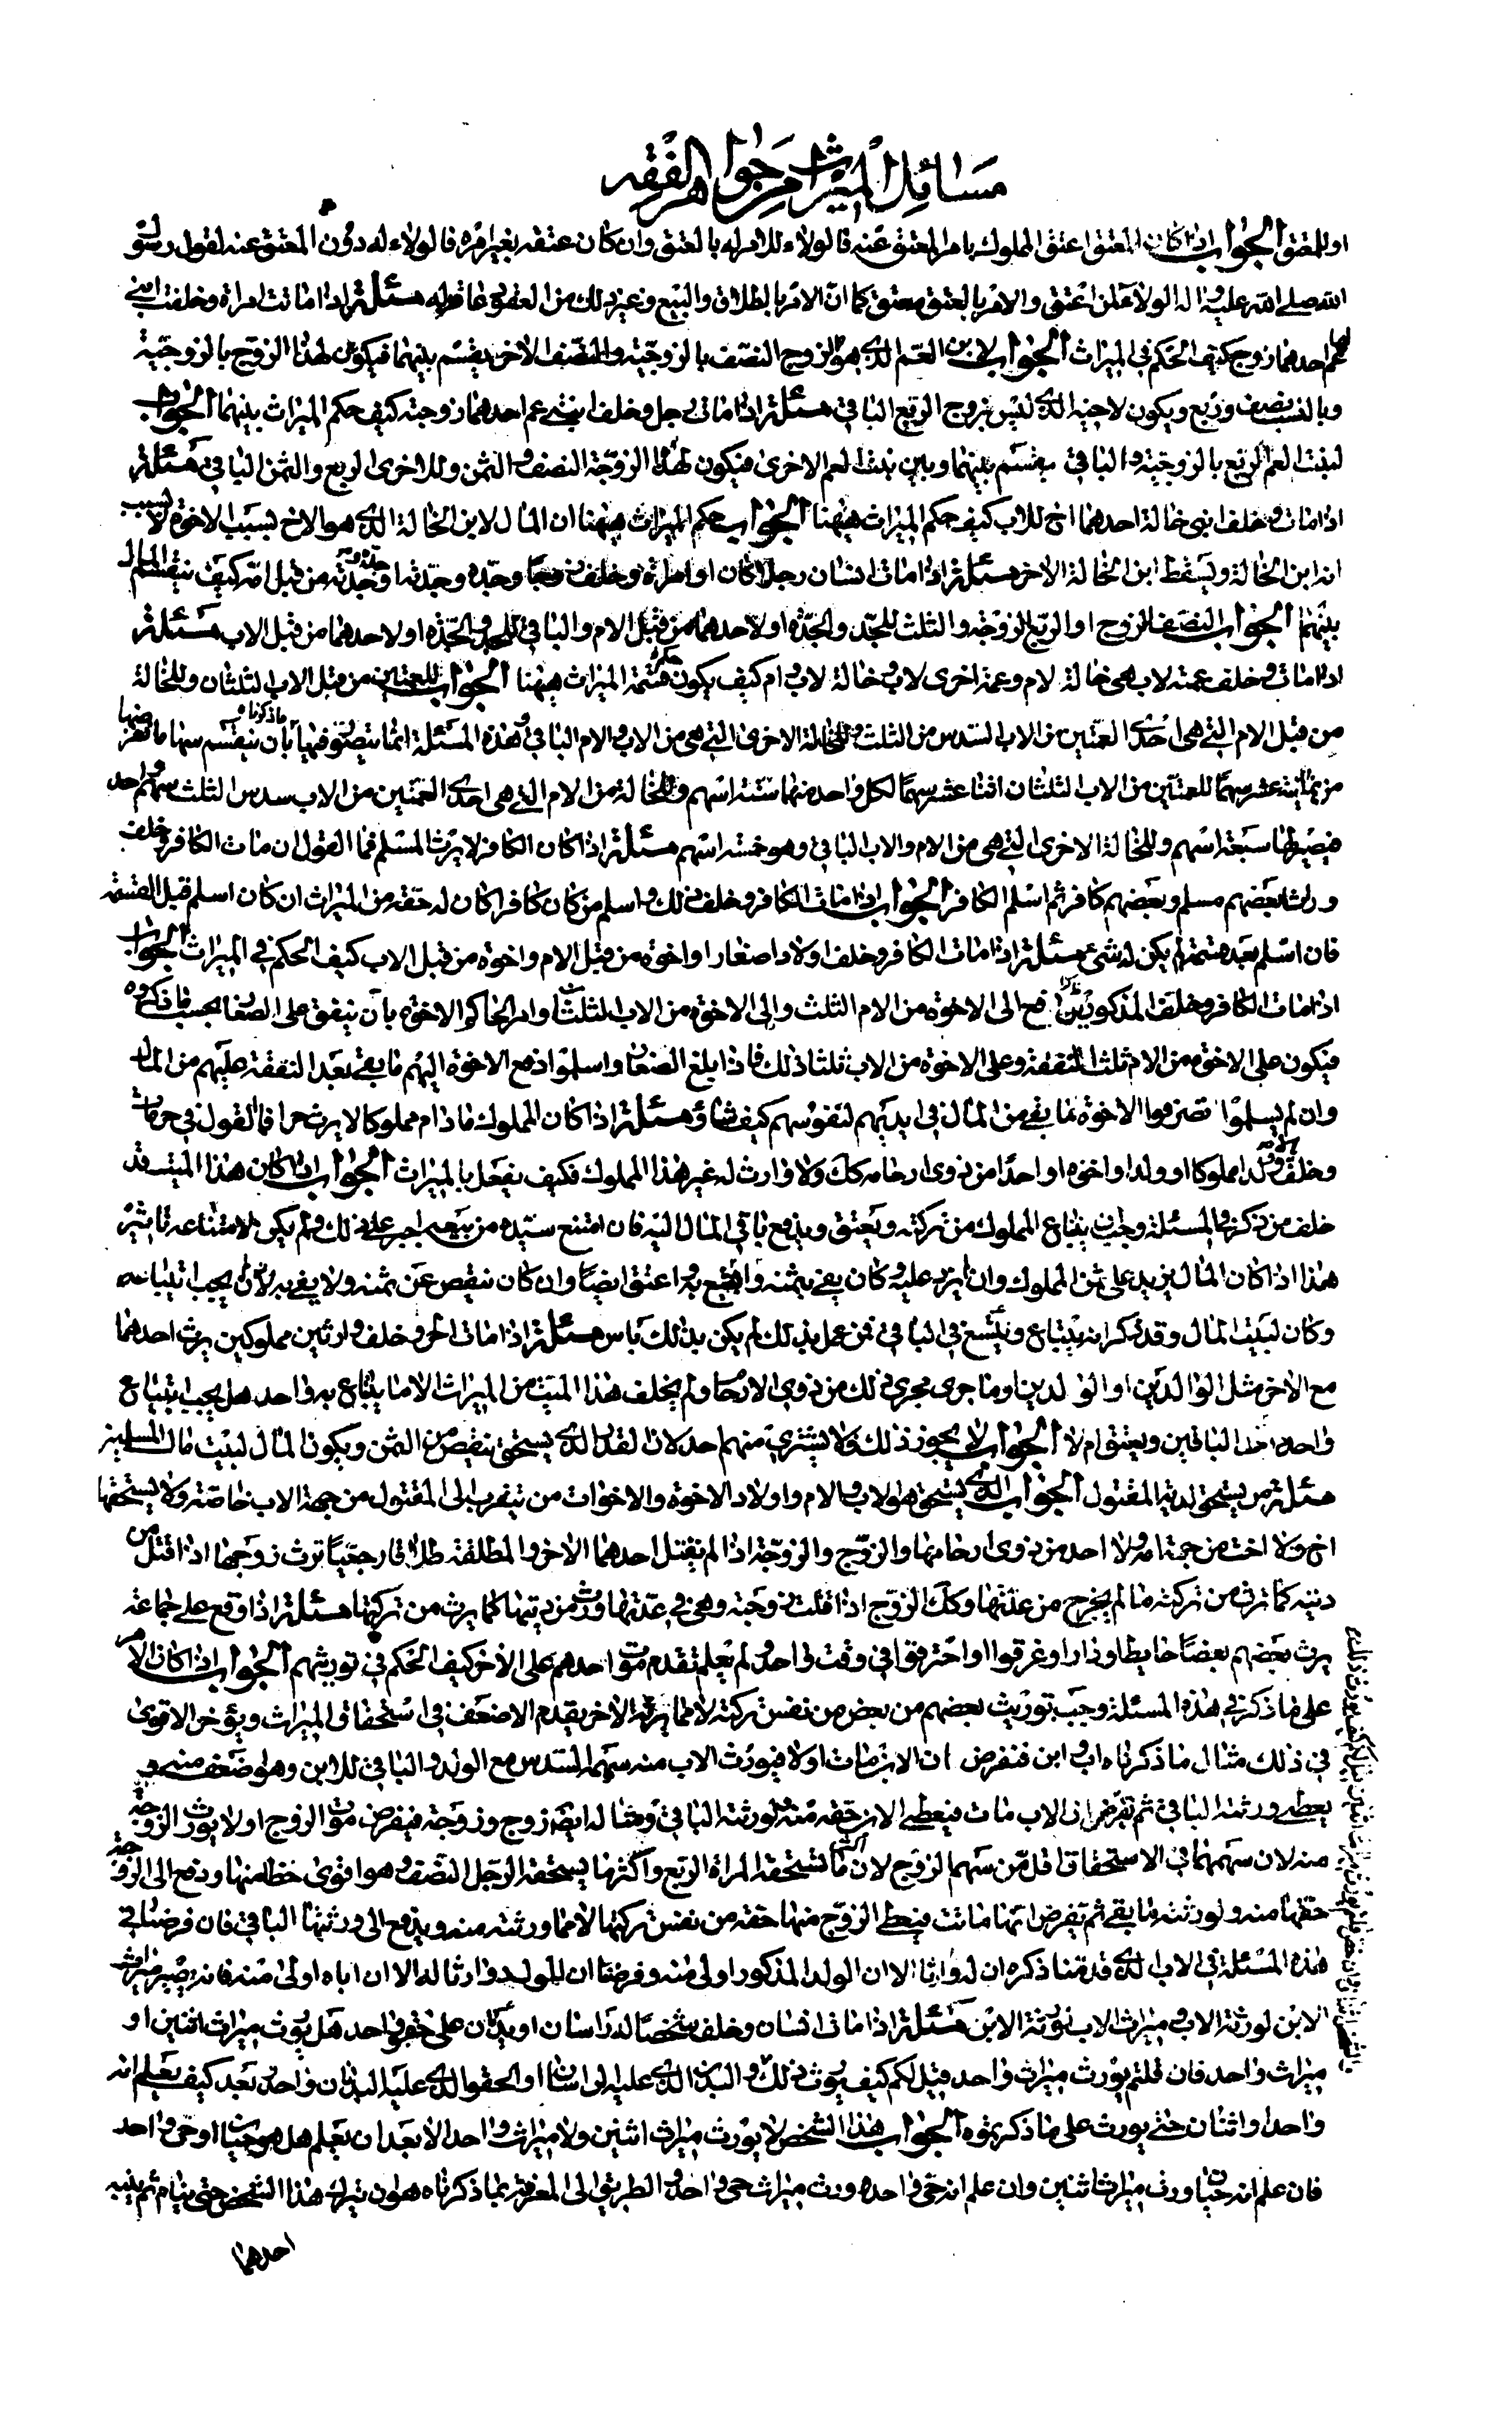 مسائل الميراث من جواهر الفقه
او للمعتق الجواب اذا كان المعتق اعتق المملوك بامر المعتق عنه فالولاء للامر له بالعتق وان كان عتقه بغير امره فالولاء له دون المعتق عنه لقول رسول
الله صلى الله عليه واله الولاء لمن اعتق والامر بالعتق معتق كما ان الامر بالطلاق والبيع وغير ذلك من العقود عاقد له مسئلة اذا ماتت امراة وخلفت ابنى
عم احدهما زوج كيف الحكم فى الميراث الجواب لابن العم الذى هو الزوج النصف بالزوجية والنصف الاخر يقسم بينهما فيكون لهذا الزوج بالزوجية
وبالنسب نصف وربع ويكون لاخيه الذى ليس بزوج الربع الباقى مسئلة اذا مات رجل وخلف ابنتى عم احدهما زوجته كيف حكم الميراث بينهما الجواب
لبنت العم الربع بالزوجية والباقى يقسم بينهما وبين بنت العم الاخرى فيكون لهذه الزوجة النصف والثمن وللاخرى الربع والثمن الباقى مسئلة
اذا مات وخلف ابنى خالة احدهما اخ للاب كيف حكم الميراث هيهنا الجواب حكم الميراث هيهنا ان المال لابن الخالة الذى هو الاخ بسبب الاخوة لا لسبب
انه ابن الخالة ويسقط ابن الخالة الاخر مسئلة اذا مات انسان رجلا كان او امراة وخلف زوجا وجده وجدته او جده وجدته من قبل امه كيف يقسم المال
بينهم الجواب النصف للزوج او الربع للزوجة والثلث للجد والجدة او لاحدهما من قبل الام والباقى للجد والجدة او لاحدهما من قبل الاب مسئلة
اذا مات وخلف عمته لاب هى خالة لام وعمة اخرى لاب وخالة لاب وام كيف يكون قسمة الميراث هيهنا الجواب للعمتين من قبل الاب الثلثان وللخالة
من قبل الام التى هى احدى العمتين من الاب السدس من الثلث وللخالة الاخرى التى هى من الاب والام الباقى وهذه المسئلة انما يتصور فيها ما ذكرناه بان ينقسم سهامها
من ثمانية عشر سهما للعمتين من الاب الثلثان اثنا عشر سهما لكل واحد منهما ستة اسهم وللخالة من الام التى هى احدى العمتين من الاب سدس الثلث سهم واحد
فيصير لها سبعة اسهم وللخالة الاخرى التى هى من الام والاب الباقى وهو خمسة اسهم مسئلة اذا كان الكافر لا يرث المسلم فما القول ان مات الكافر وخلف
ورثة بعضهم مسلم وبعضهم كافر ثم اسلم الكافر الجواب اذا مات الكافر وخلف ذلك واسلم من كان كافرا كان له حقه من الميراث ان كان اسلم قبل القسمة
فان اسلم بعد قسمته لم يكن له شىء مسئلة اذا مات الكافر وخلف اولادا صغارا واخوة من قبل الام واخوة من قبل الاب كيف الحكم فى الميراث الجواب
اذا مات الكافر وخلف المذكورين دفع الى الاخوة من الام الثلث والى الاخوة من الاب الثلثان وامر الحاكم الاخوة بان ينفق على الصغار بحسب ما ذكروه
فيكون على الاخوة من الام ثلث النفقة وعلى الاخوة من الاب ثلثا ذلك فاذا بلغ الصغار واسلموا دفع الاخوة اليهم ما بقى بعد النفقة عليهم من المال
وان لم يسلموا تصرفوا الاخوة بما بقى من المال فى ايديهم لنفوسهم كيف شاؤا مسئلة اذا كان المملوك ما دام مملوكا لا يرث حرا فما القول فى حر مات
وخلف ولدا مملوكا او ولدا واخوه او احدا من ذوى ارحامه كك ولا وارث له غير هذا المملوك فكيف يفعل بالميراث الجواب اذا كان هذا الميت قد
خلف من ذكر فى المسئلة وجب ان يبتاع المملوك من تركته ويعتق ويدفع باقى المال اليه فان امتنع سيده من بيعه اجبر على ذلك ولم يكن لامتناعه تاثير
هذا اذا كان المال يزيد على ثمن المملوك وان لم يزد عليه وكان يفى بثمنه وابتيع به واعتق ايضا وان كان ينقص عن ثمنه ولا يفى به لم يجب ابتياعه
وكان لبيت المال وقد ذكر انه يبتاع ويستسعى فى الباقى فمن عمل بذلك لم يكن بذلك باس مسئلة اذا مات الحر وخلف وارثين مملوكين يرث احدهما
مع الاخر مثل الوالدين او الولدين وما جرى مجرى ذلك من ذوى الارحام ولم يخلف هذا الميت من الميراث الا ما يبتاع به واحد هل يجب ابتياع
واحد اخذ الباقين ويعتق ام لا الجواب لا يجوز ذلك ولا يشترى منهم احد لان القدر الذى يستحق ينقص من الثمن ويكون المال لبيت مال المسلمين
مسئلة من يستحق لدية المقتول الجواب الذى يستحق هو الاب والام واولاد الاخوة والاخوات من يتقرب الى المقتول من جهة الاب خاصة ولا يستحقها
اخ ولا اخت من جهة امه ولا احد من ذوى ارحامها والزوج والزوجة اذا لم يقتل احدهما الاخر والمطلقة طلاقا رجعيا ترث زوجها اذا قتل من
ديته كما ترث من تركته ما لم يخرج من عدتها وكك الزوج اذا قتلت زوجته وهى فى عدتها ورث من ديتها كما يرث من تركتها مسئلة اذا وقع على جماعة
يرث بعضهم بعضا حايطا او دار او غرقوا او احترقوا فى وقت واحد ولم يعلم تقدم موت احدهم على الاخر كيف الحكم فى توريثهم الجواب اذا كان الامر
على ما ذكر فى هذه المسئلة وجب توريث بعضهم من بعض من نفس تركته لا مما يرثه الاخر يقدم الاضعف فى استحقاق الميراث ويؤخر الاقوى
فى ذلك مثال ما ذكرناه اب وابن فنفرض ان الابن مات اولا فيورث الاب منه سهمه السدس مع الولد والباقى للابن وهو اضعف منه و
يعطى ورثته الباقى ثم نفرض ان الاب مات فيعطى الابن حقه منه ولورثته الباقى ومثاله ايضا زوج وزوجة فيفرض موت الزوج اولا يورث الزوجة
منه لان سهمها فى الاستحقاق اقل من سهم الزوج لان اكثر ما تستحقه المراة الربع واكثر ما يستحقه الرجل النصف وهو اقوى حظا منها ودفع الى الزوجة
حقها منه ولورثته ما بقى ثم نفرض انها ماتت فيعطى الزوج منها حقه من نفس تركتها لا مما ورثته منه ويدفع الى ورثتها الباقى فان فرضنا فى
هذه المسئلة فى الاب الذى قدمنا ذكره ان له وارثا الا ان الولد المذكور اولى منه وفرضنا ان للولد وارثا له الا ان اباه اولى منه فانه يصير ميراث
الابن لورثة الاب وميراث الاب لورثة الابن مسئلة اذا مات انسان وخلف شخصا له راسان او بدنان على حقو واحد هل يورث ميراث اثنين او
ميراث واحد فان قلتم يورث ميراث واحد قيل لكم كيف يورث ذلك والبدن الذى عليه راسان او الحقو الذى عليه البدنان واحد بعد كيف يعلم انه
واحد او اثنان حتى يورث على ما ذكرتموه الجواب هذا الشخص لا يورث ميراث اثنين ولا ميراث واحد الا بعد ان يعلم هل هو حيان او حى واحد
فان علم انه حيان ورث ميراث اثنين وان علم انه حى واحد ورث ميراث حى واحد والطريق الى المعرفة بما ذكرناه هو ان يترك هذا الشخص حتى ينام ثم ينبه
احدهما